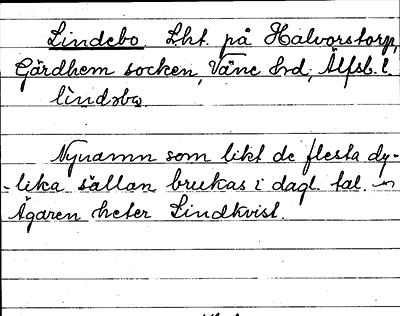 Lindebo Lht. på Halvorstorp,
Gärdhem socken, Väne hd, Älfsb. l.
lìndəbω
Nynamn som likt de flesta dy-
lika sällan brukas i dagl. tal. ~
Ägaren heter Lindkvist.